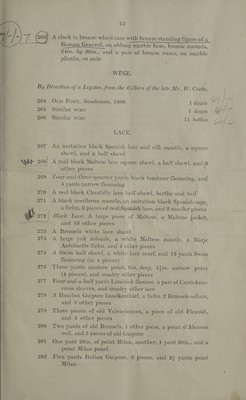 13
263 A clock in bronze wheel case with bronze standing figure of a
Roman General, on oblong marble base, bronze mounts,
24in. by 20in., and a pair of bronze vases, on marble
plinths, en suite
WINE.
By Direction of a Legatee, from the Cellars of the late Mr. W. Cash.
264 OLD PORT, Sandeman, 1908 1 dozen
265 Similar wine 1 dozen
266 Similar wine 11 bottles
LACE.
267 An imitation black Spanish lace and silk mantle, a square
shawl, and a half shawl
268 A real black Maltese lace square shawl, a half shawl, and 3
other pieces
269 Four-and-three-quarter yards black tambour flouncing, and
4 yards narrow flouncing
270 A real black Chantilly lace half shawl, berthe and veil
271 A black needlerun mantle, an imitation black Spanish cape,
a fichu, 8 pieces of real Spanish lace, and 2 smaller pieces
272 Black Lace: A large piece of Maltese, a Maltese jacket,
and 25 other pieces
273 A Brussels white lace shawl
274 A large yak ninade, a white Maltese mantle, a Marie
Antoinette fichu, and 4 other pieces
275 A Swiss half shawl, a white lace scarf, and 13 yards Swiss
flouncing (in 4 pieces)
276 Three yards modern point, 6in. deep, 4½in. narrow point
(4 pieces), and sundry other pieces
277 Four-and-a-half yards Limerick flounce, a pair of Carrickmacross
sleeves, and sundry other lace
278 A Honiton Guipure handkerchief, a fichu, 2 Brussels collars,
and 8 other pieces
279 Three pieces of old Valenciennes, a piece of old Flemish,
and 4 other pieces
280 Two yards of old Brussels, 1 other piece, a point d'Alencon
veil, and 3 pieces of old Guipure
281 One yard 20in. of point Milan, another, 1 yard 10in., and a
point Milan panel
282 Five yards Italian Guipure, 9 pieces, and 2½ yards point
Milan